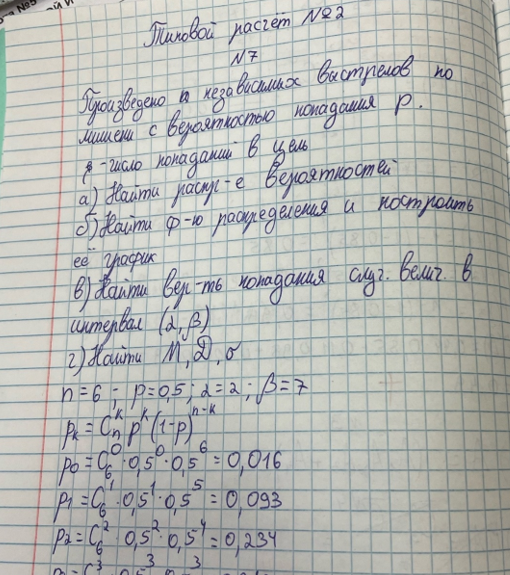 Типовой расчёт №2
N7
Произведено n независимых выстрелов по
мишени с вероятностью попадания p.
ξ-число попаданий в цель
а) Найти распр-е вероятностей
б) Найти ф-ю распределения и построить
её график
в) Найти вер-ть попадания случ. велич. в
интервал (α, β)
г) Найти М, D, σ
n=6; p=0,5; α=2; β=7
pₖ=Cₙᵏ pᵏ (1-p)ⁿ⁻ᵏ
p0=C₆⁰·0,5⁰·0,5⁶=0,016
p1=C₆¹·0,5¹·0,5⁵=0,093
p2=C₆²·0,5²·0,5⁴=0,234